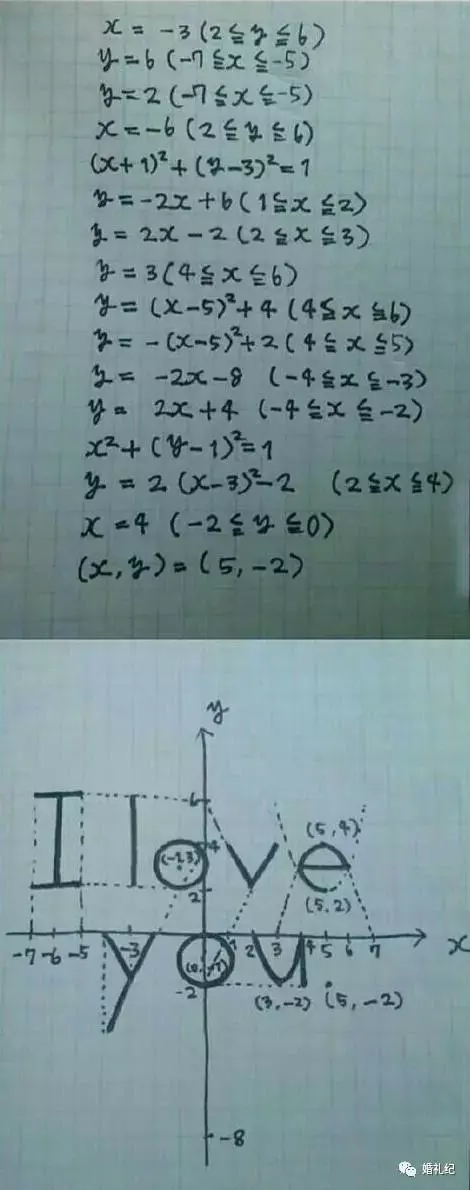 x = -3 (2≦y≦6)
y = 6 (-7≦x≦-5)
y = 2 (-7≦x≦-5)
x = -6 (2≦y≦6)
(x+1)²+(y-3)²=1
y = -2x+6 (1≦x≦2)
y = 2x-2 (2≦x≦3)
y = 3 (4≦x≦6)
y = (x-5)²+4 (4≦x≦6)
y = -(x-5)²+2 (4≦x≦5)
y = -2x-8 (-4≦x≦-3)
y = 2x+4 (-4≦x≦-2)
x²+(y-1)²=1
y = 2(x-3)²-2 (2≦x≦4)
x = 4 (-2≦y≦0)
(x,y)=(5,-2)
y
6
I love
4
(5,4)
(-1,3)
2
(5,2)
-7 -6 -5 -3 1 2 3 4 5 6 7 x
you
-2 (3,-2) (5,-2)
-8
婚礼纪